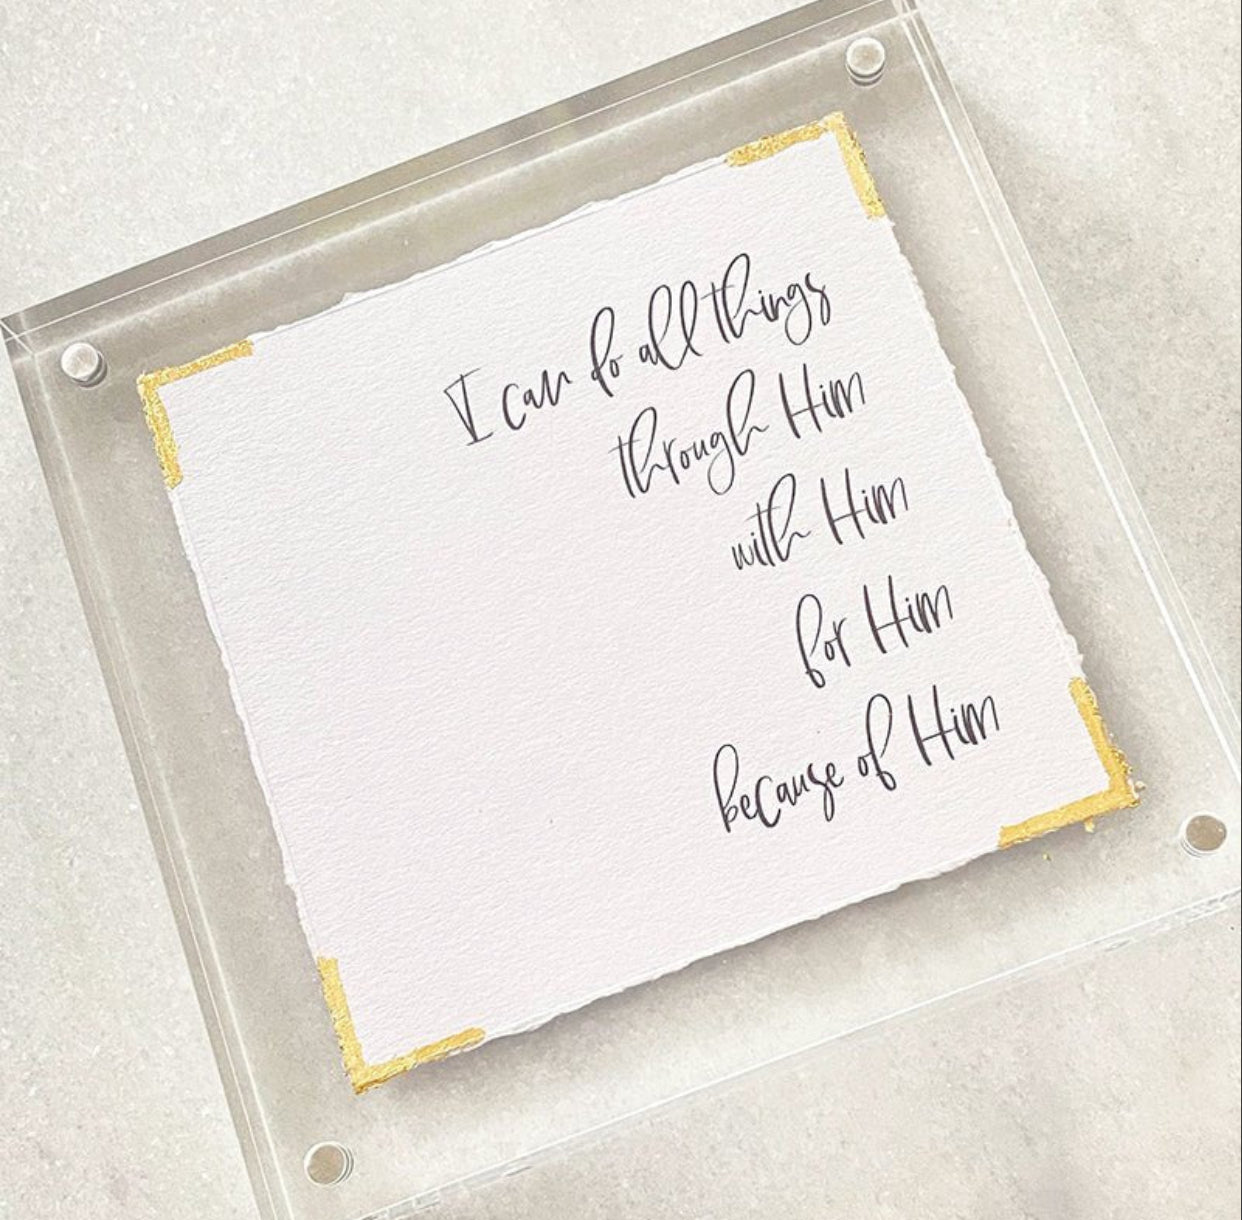 I can do all things
through Him
with Him
for Him
because of Him